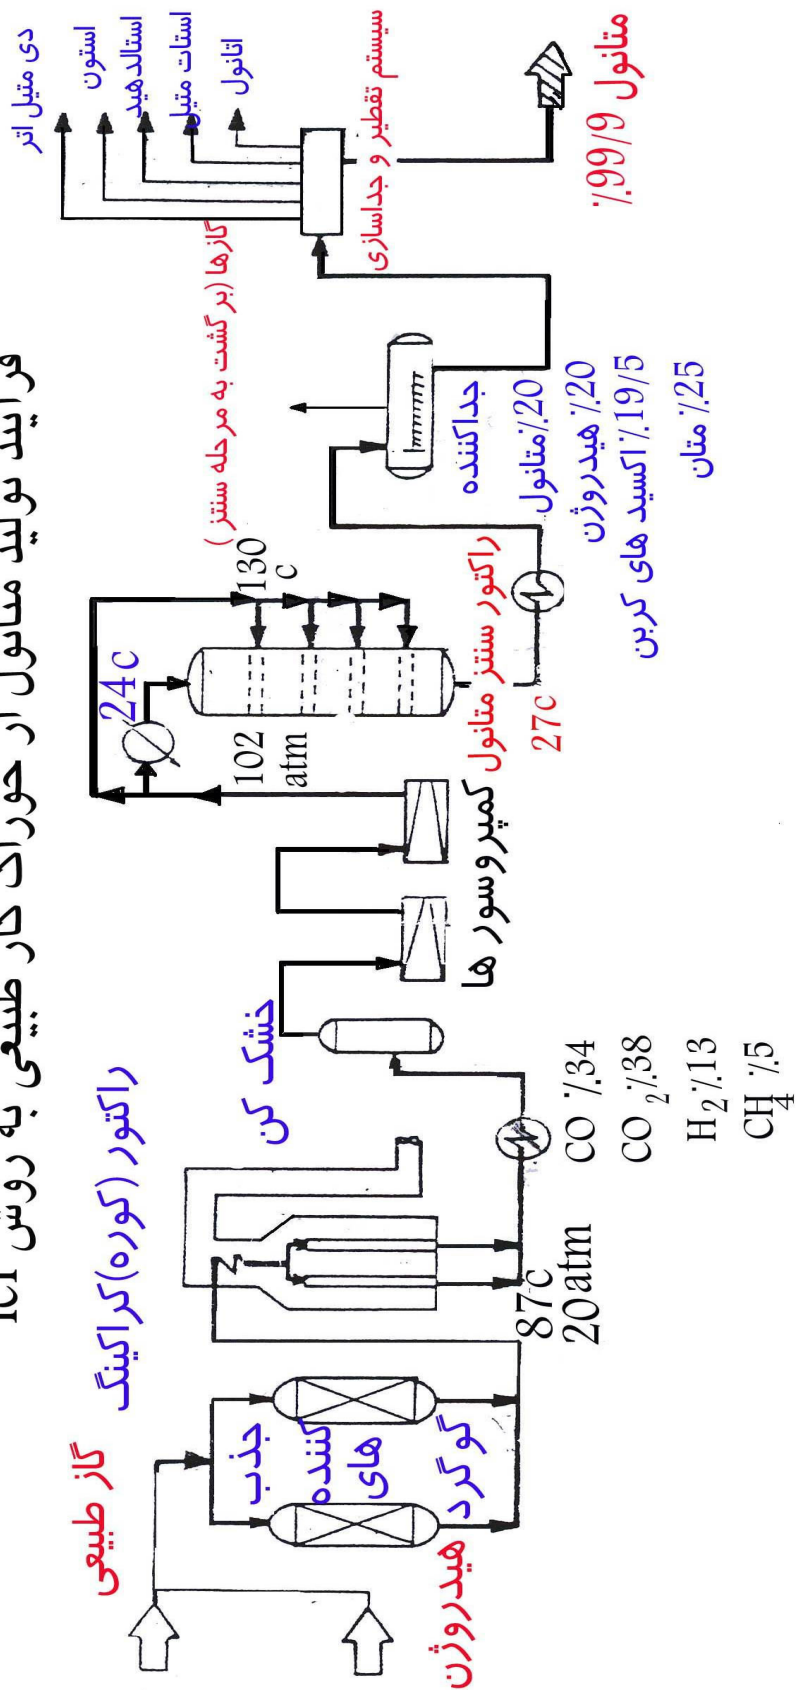 فرایند تولید متانول از خوراک گاز طبیعی به روش ICI
گاز طبیعی
هیدروژن
جذب
کننده
های
گوگرد
راکتور (کوره)کراکینگ
87c
20atm
CO ٪34
CO2 ٪38
H2 ٪13
CH4 ٪5
خشک کن
کمپروسور ها
24c
102
atm
130
c
راکتور سنتز متانول
27c
گازها (بر گشت به مرحله سنتز )
جداکننده
20٪متانول
20٪ هیدروژن
19/5٪ اکسید های کربن
25٪ متان
سیستم تقطیر و جداسازی
دی متیل اتر
استون
استالدهید
استات متیل
اتانول
متانول 99/9٪